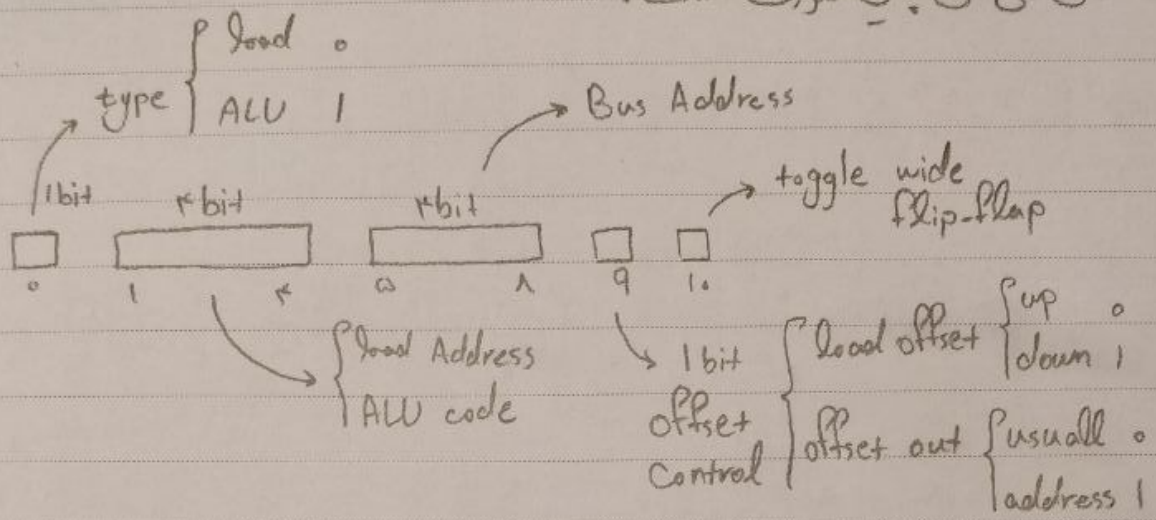 type { load ۰
ALU ۱
Bus Address
toggle wide
flip-flap
۱bit
۴bit
۴bit
۰ ۱ ۴ ۵ ۸ ۹ ۱۰
{ load Address
ALU code
۱bit
offset
control
{ load offset { up ۰
down ۱
offset out { usuall ۰
address ۱